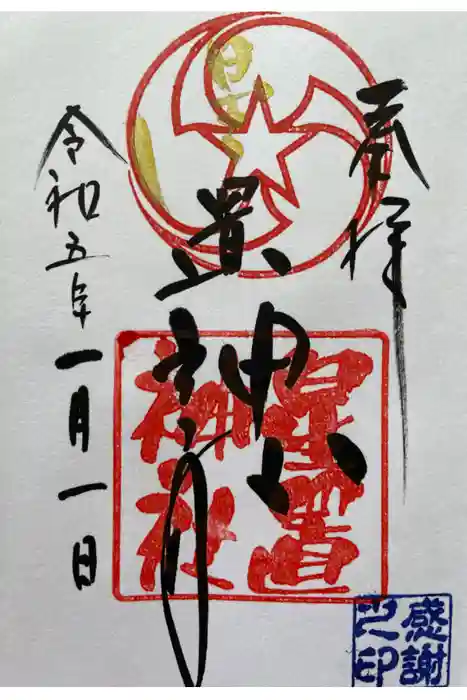 奉拝
星置神社
令和五年一月一日
星置
神社
感謝
之印